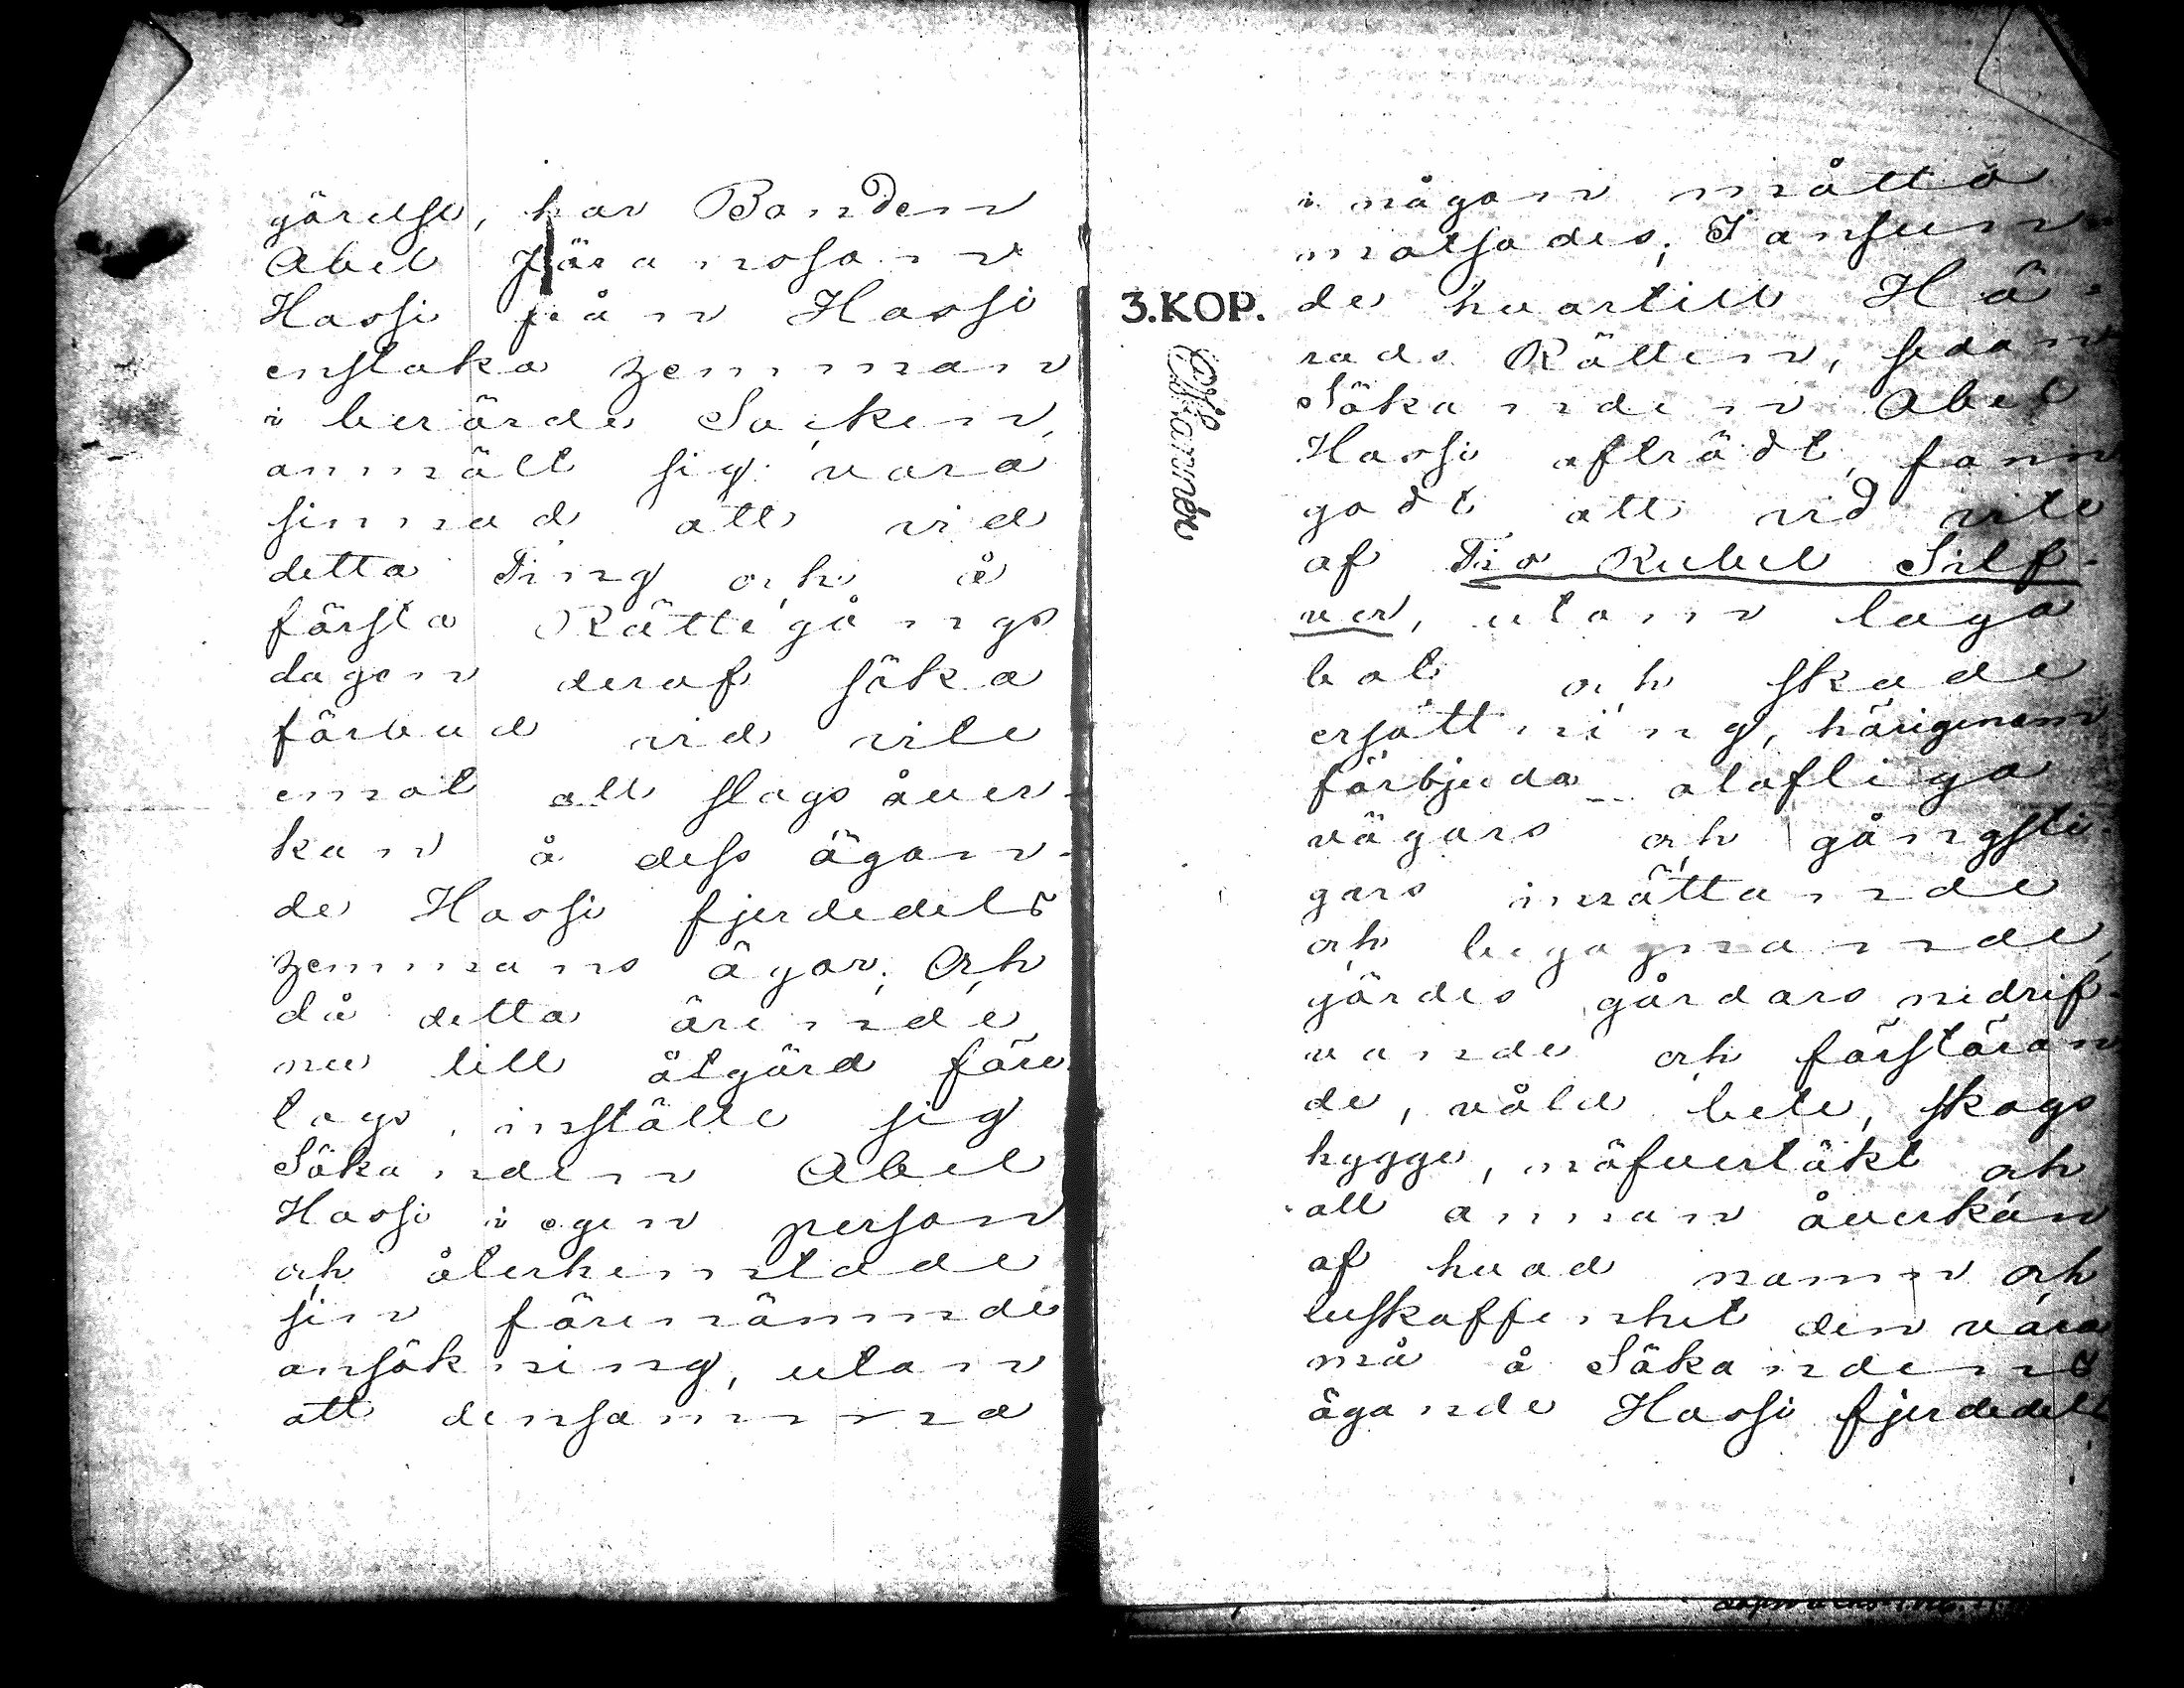 görelse, har Bonden
Abel Göransson
Hassi från Hassi
enstaka hemman
i berörde Socken,
anmält sig vara
sinnad att vid
detta Ting och å
första Rättegångs
dagen deraf söka
förbud vid vite
emot all slags åver-
kan å dess ägan-
de Hassi fjerdedels
hemmans ägor; Och
då detta ärende,
nu till åtgärd före
togs, instälte sig
Sökanden Abel
Hassi i egen person
och återhemtade
sin förenämnde
ansökning, utan
att densamma
i någon måtto
motsades; I anseen-
de hvartill Hä-
rads Rätten, sedan
Sökanden Abel
Hassi afträdt, fann
godt att vid vite
af Tio Rubel Silf-
ver, utom laga
bot och skade
ersättning, härigenom
förbjuda olofliga
vägars och gångsti-
gars inrättande
och begagnande,
gärdes gårdars nedrif-
vande och förstöran
de, våld bete, skogs
hygge, näfvertäkt och
all annan åverkan
af hvad namn och
beskaffenhet den vara
må å Sökandens
ägande Hassi fjerdedels
3.KOP.